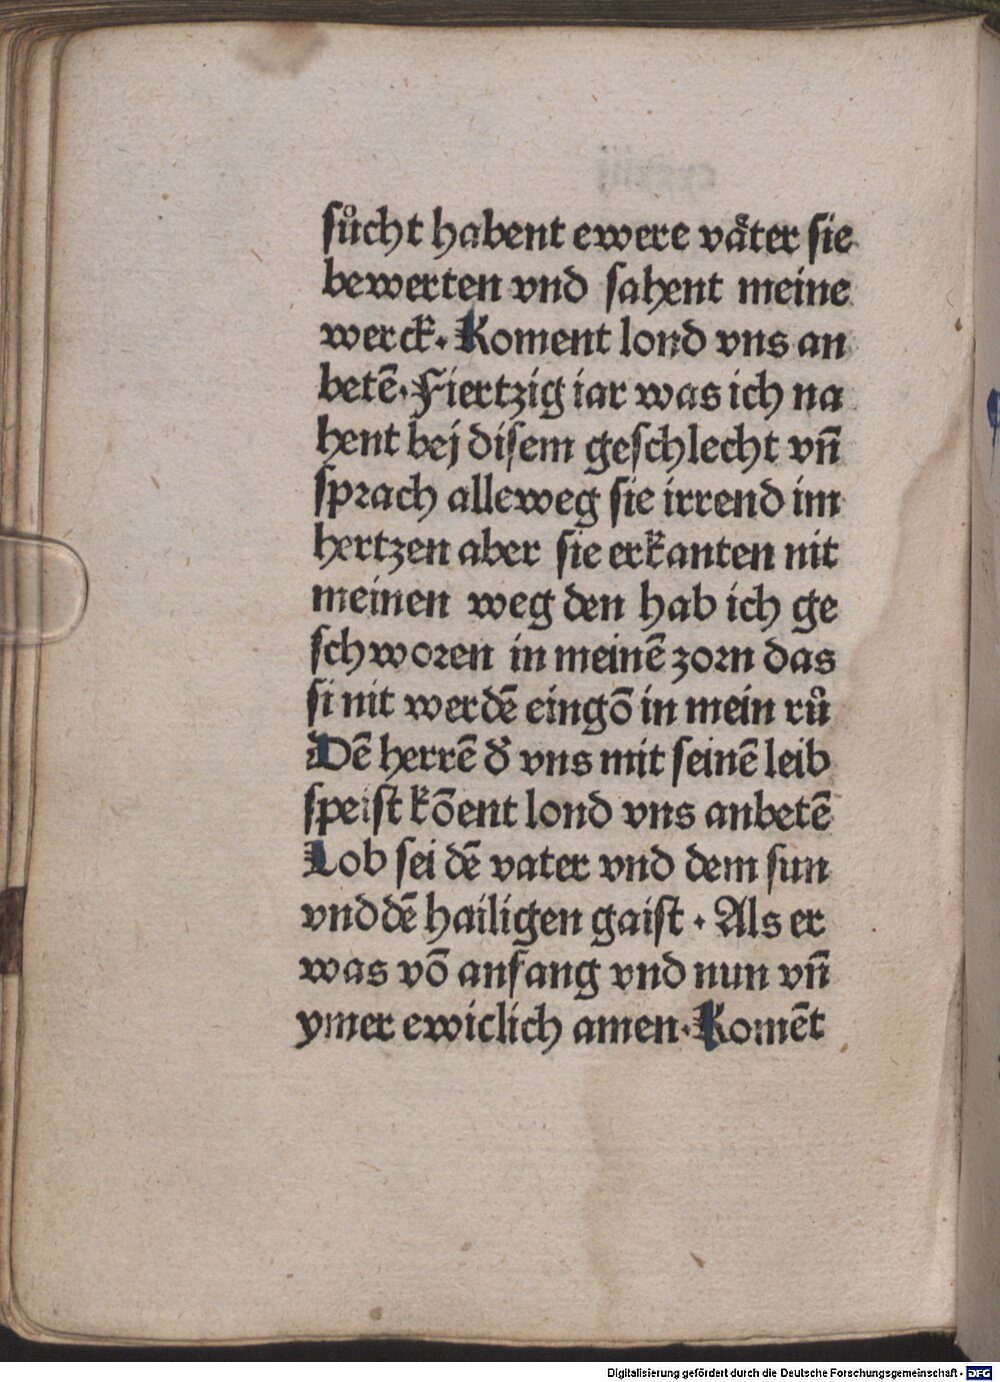 ſůcht habent ewere våter ſie
bewerten vnd ſahent meine
werck. Koment lond vns an
betē. Fiertzig iar was ich na
hent bej diſem geſchlecht vn̄
ſprach alleweg ſie irrend im
hertzen aber ſie erkanten nit
meinen weg den hab ich ge
ſchworen in meinē zorn das
ſi nit werdē eingō in mein rů
Dē herrē d̕ vns mit ſeinē leib
ſpeiſt kōent lond vns anbetē
Lob ſei dē vater vnd dem ſun
vnd dē hailigen gaiſt. Als er
was vō anfang vnd nun vn̄
ymer ewiclich amen. Komēt
Digitalisierung gefördert durch die Deutsche Forschungsgemeinschaft - DFG